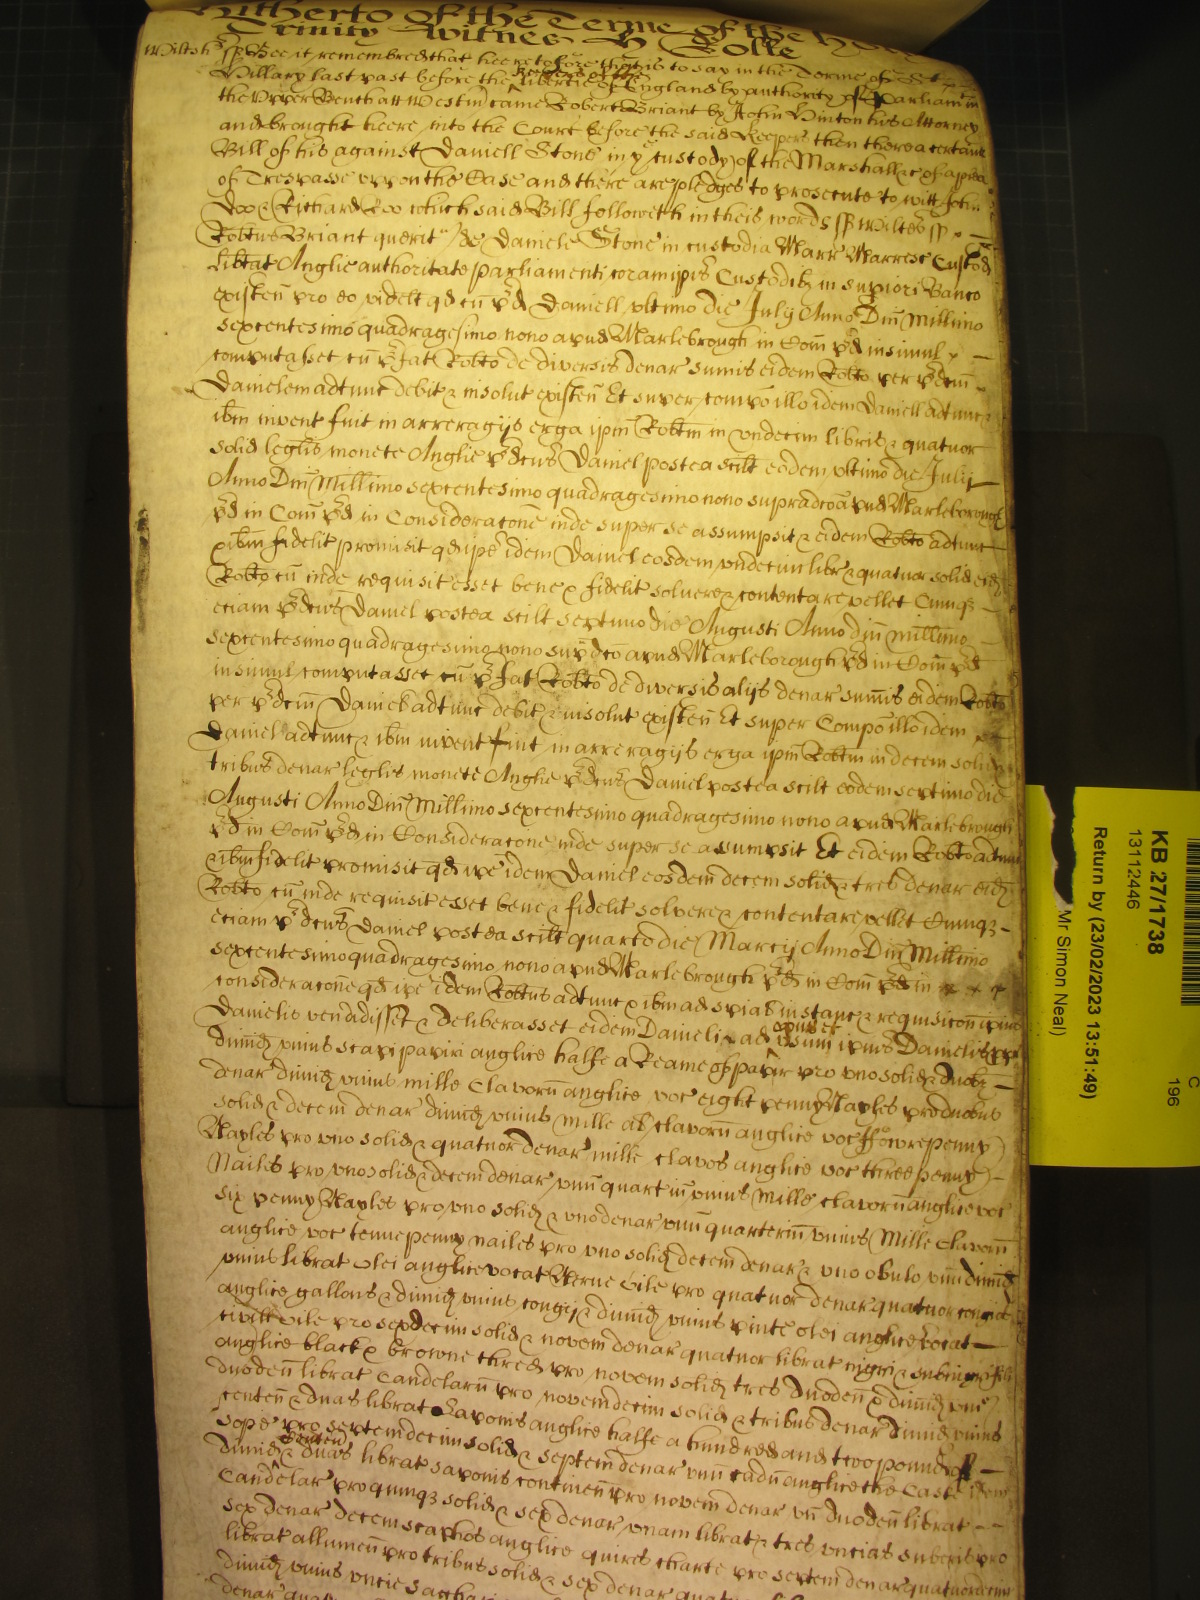 Hitherto of the Terme of the Holy
Trinity Witnes H Rolle
Wiltsh ss Bee it remembred that heeretofore that is to say in the Terme of St
Hillary last past before the Keepers of the libertie of England by authority of Parliam
the Upper Bench att Westm came Robert Briant by John Hinton his Attorney
and brought heere into the Court before the said Keepers then there a certaine
Bill of his against Daniell Stone in ye custody of the Marshall &c of a plea
of Trespasse uppon the Case and there are pledges to prosecute to witt John
Doo & Richard Roo which said Bill followeth in theis words ss Wiltes ss
Robtus Briant querit de Daniele Stone in custodia Marr Marresc Custod
libtat Anglie authoritate parliamenti coram ipis Custodibz in supiori Banco
existen pro eo videlt qd cu pd Daniell ultimo die July Anno Dni Millimo
sexcentesimo quadragesimo nono apud Marlebrough in Com pd insimul
computasset cu pfat Robto de diversis denar sumis eidem Robto per pdcm
Danielem adtunc debit & insolut existen Et super compo illo idem Daniell adtunc &
ibm invent fuit in arreragijs erga ipm Robtm in undecim libris & quatuor
solid leglis monete Anglie pdcus Daniel postea scilt eodem ultimo die July
Anno Dni Millimo sexcentesimo quadragesimo nono supradco apud Marleborough
pd in Com pd in Consideracone inde super se assumpsit & eidem Robto adtunc
& ibm fidelit promisit qd ipe idem Daniel eosdem undecim libr & quatuor solid eid
Robto cu inde requisit esset bene & fidelit solvere & contentare vellet Cumqz
eciam pdcus Daniel postea scilt septimo die Augusti Anno dni millimo
sexcentesimo quadragesimo nono supdco apud Marleborough pd in Com pd
insimul computasset cu pfat Robto de diversis alijs denar sumis eidem Robto
per pdcm Daniel adtunc debit & insolut existen Et super Compo illo idem
Daniel adtunc & ibm invent fuit in arreragijs erga ipm Robtm in decem solid &
tribus denar leglis monete Anglie pdcus Daniel postea scilt eodem septimo die
Augusti Anno Dni Millimo sexcentesimo quadragesimo nono apud Marlebrough
pd in Com pd in Consideracone inde super se assumpsit Et eidem Robto adtunc
& ibm fidelit promisit qd ipe idem Daniel eosdem decem solid & tres denar eid
Robto cu inde requisit esset bene & fidelit solvere & contentare vellet Cumqz
eciam pdcus Daniel postea scilt quarto die Marcij Anno Dni Millimo
sexcentesimo quadragesimo nono apud Marlebrough pd in Com pd in
consideracone qd ipe idem Robtus adtunc & ibm ad spial instanc & requisicon ipius
Danielis vendidisset & deliberasset eidem Danieli ad opus et usum ipius Danielis
dimid unius scapi papiri anglice halfe a Reame of papir pro uno solid & duobz
denar dimid unius mille Clavoru anglice voc eight penny Nayles pro duobus
solid & decem denar dimid unius mille al clavoru anglice voc ffowrepenny
Nayles pro uno solid & quatuor denar mille clavos anglice voc three penny
Nailes pro uno solid & decem denar unu quarteriu unius Mille clavoru anglice voc
six penny Nayles pro uno solid & uno denar unu quarteriu unius Mille Clavoru
anglice voc tenne penny nailes pro uno solid decem denar & uno obulo unu dimid
unius librat olei anglice vocat Nerue Oile pro quatuor denar quatuor congios
anglice gallons & dimid unius congij & dimid unius pinte olei anglice vocat
civill oile pro sexdecim solid & novem denar quatuor librat nigri & subnigri fili
anglice black & browne thred pro novem solid tres duoden & dimid une
duoden librat Candelaru pro novemdecim solid & tribus denar dimid unius
centen & duas librat Saponis anglice halfe a hundred and two pound of
Sope pro septemdecim solid & septem denar unu cadu anglice the Caste
dimid Centen & duas librat saponis continen pro novem denar un duoden librat
Candelar pro quinqz solid & sex denar unam librat & tres uncias suberis pro
sex denar decem scaphos anglice quires charte pro septem denar quatuordecim
librat allumen pro tribus solid & sex denar
dimid unius uncie
denar
KB 27/1738
13112446
Return by (23/02/2023 13:51:49)
Mr Simon Neal)
C
196